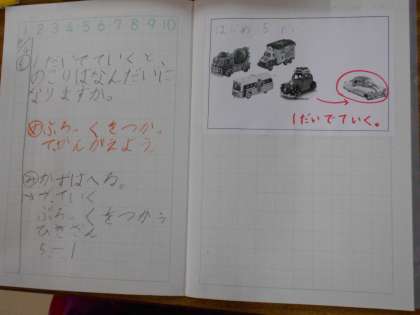 1 2 3 4 5 6 7 8 9 10
1だいでていくと、
のこりはなんだいに
なりますか。
ぶろっくをつかっ
てかんがえよう
かずはへる。
でていく
ぶろっくをつかう
ひきざん
5-1
はじめ5だい
1だいでていく。